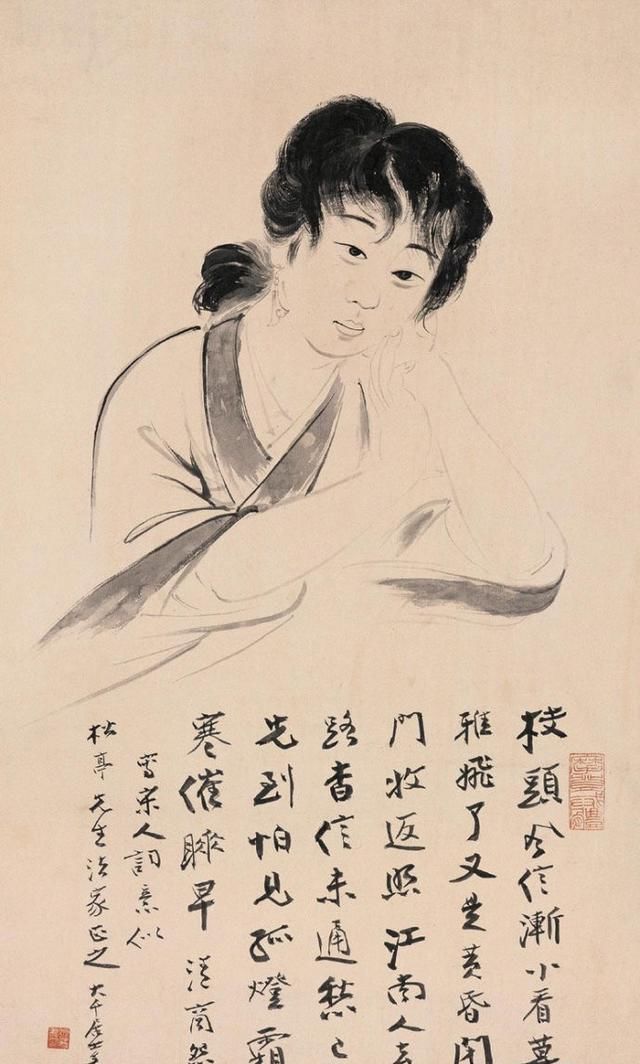 枝頭風信漸小看暮
雅飛了又是黃昏閉
門收返照江南人去
路杳信未通愁已
先到怕見孤燈霜
寒催睡早 清商怨
寫宋人詞意似
松亭先生法家正之 大千居士